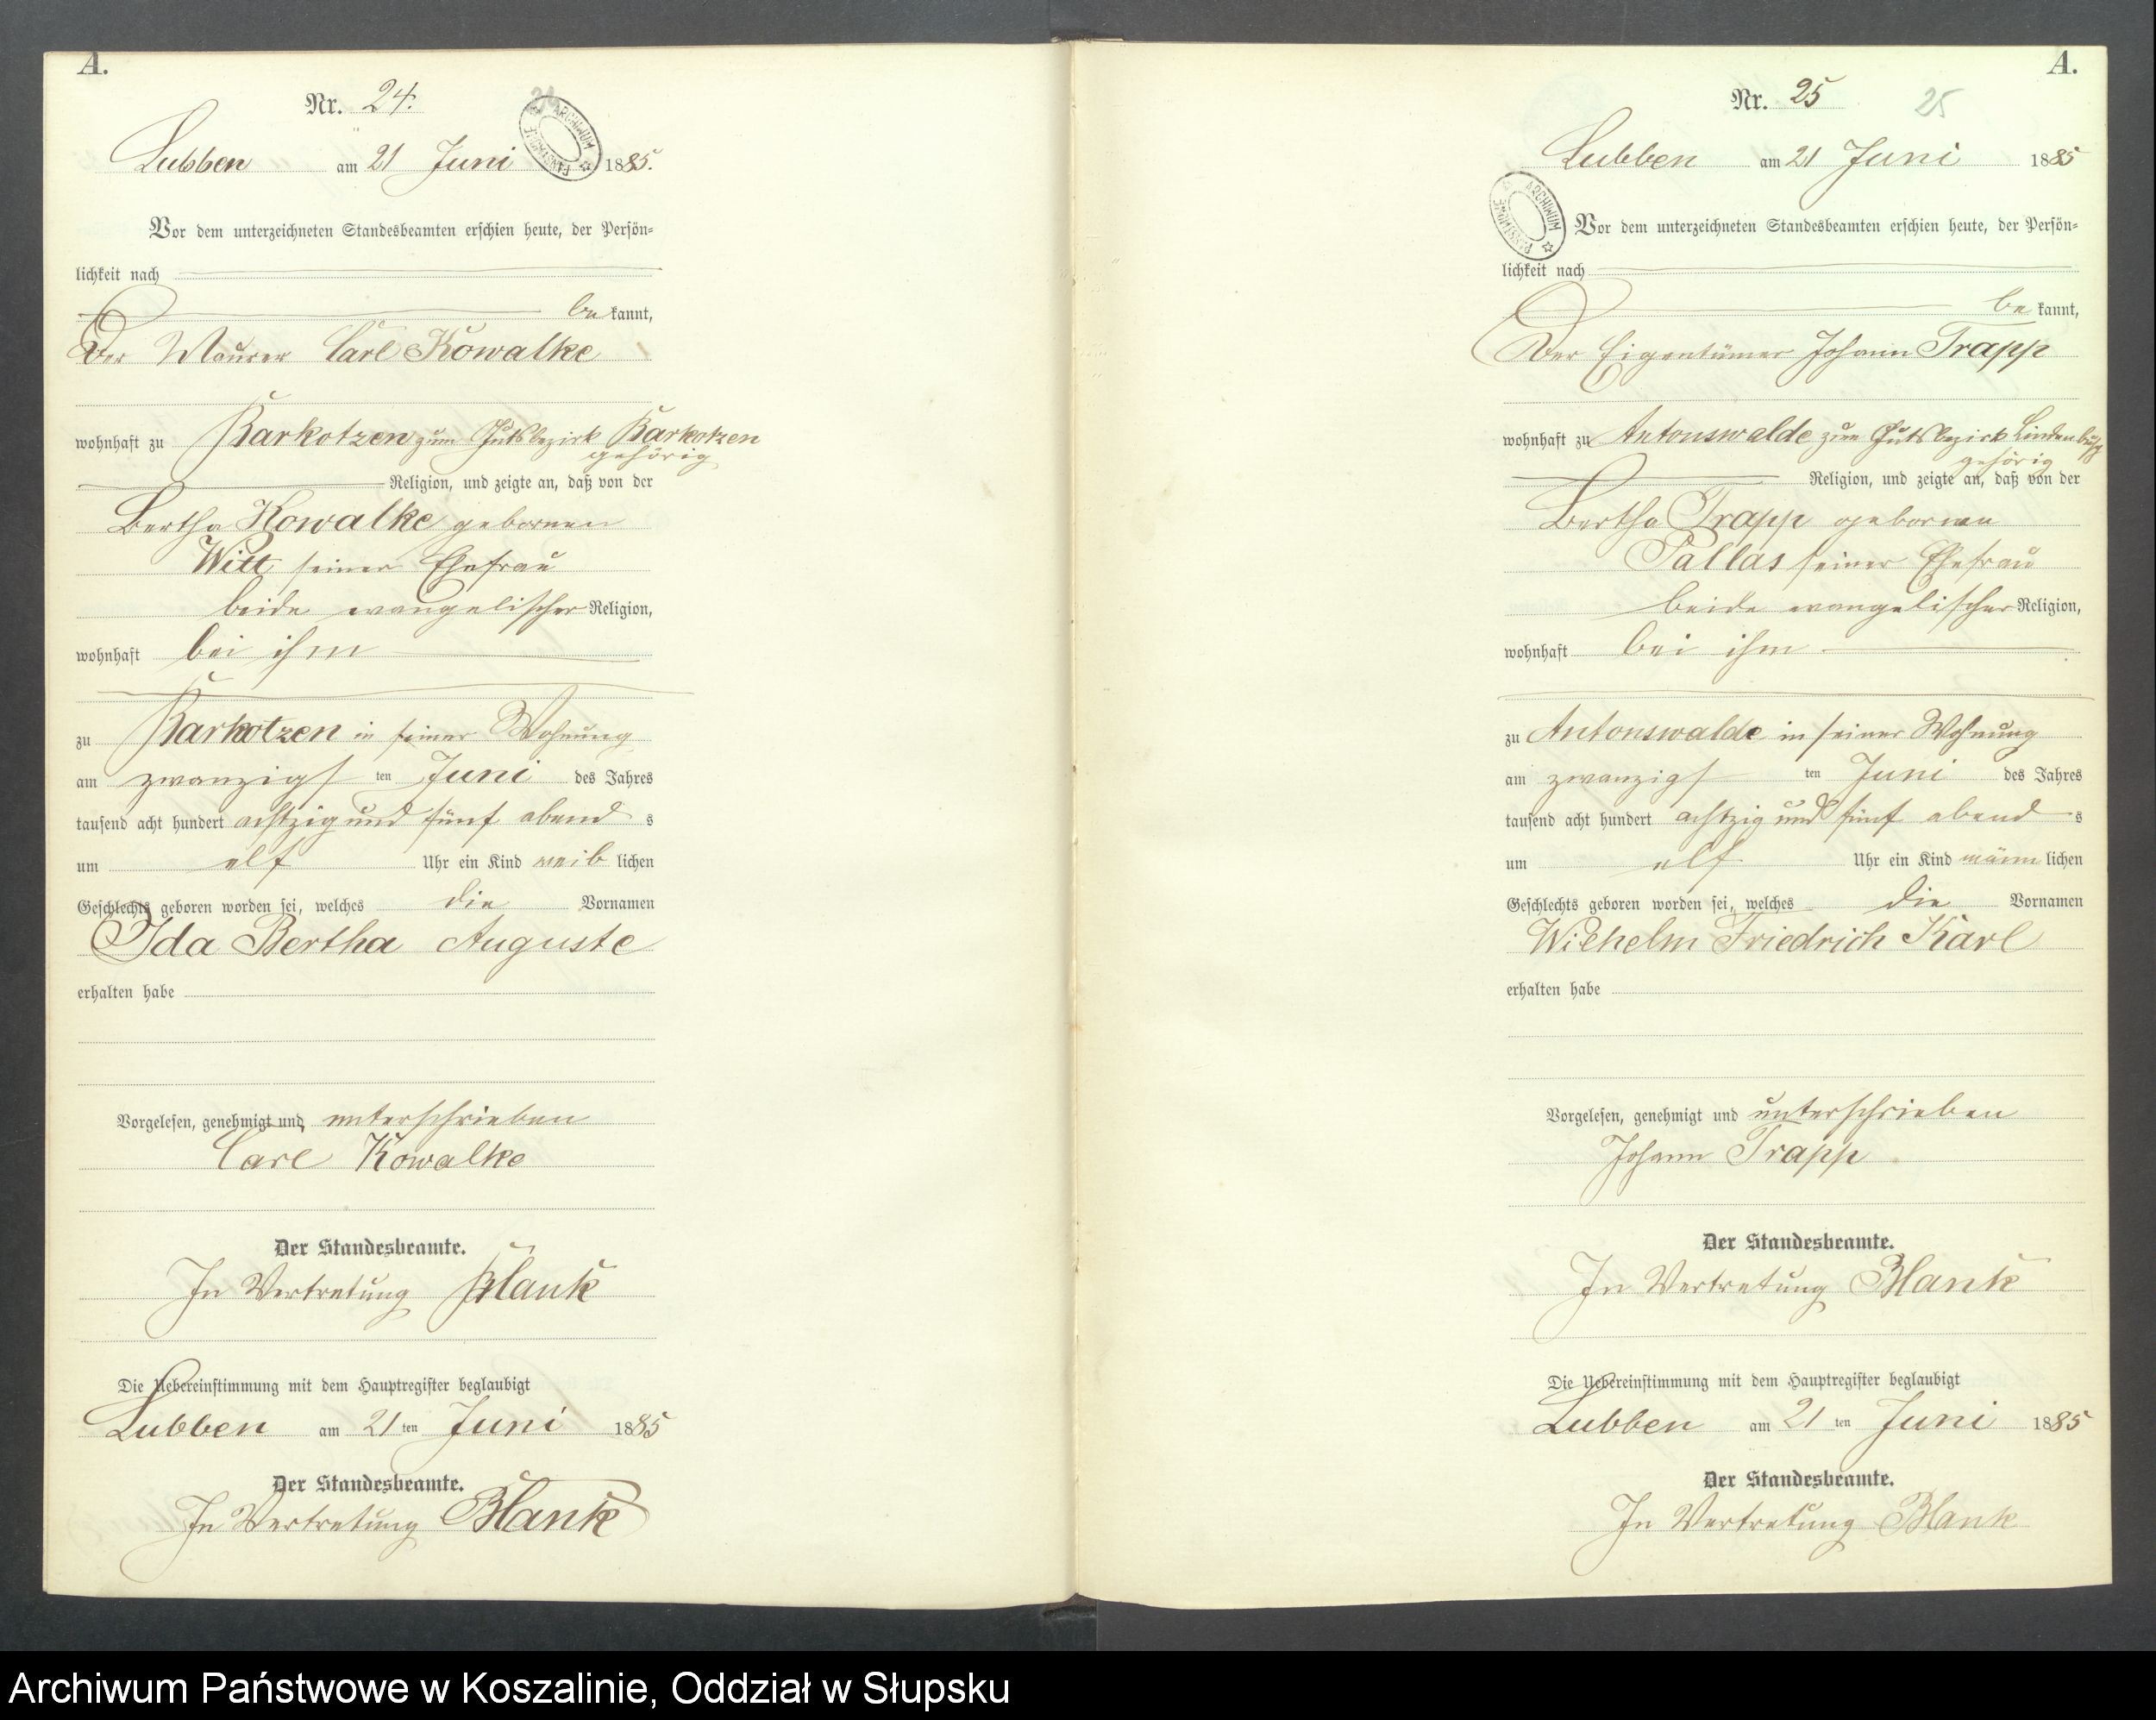 A.
Nr. 24.
24
ARCHIWUM PAŃSTWOWE
Lubben am 21 Juni 1885.
Vor dem unterzeichneten Standesbeamten erschien heute, der Persön-
lichkeit nach
be kannt,
Der Maurer Carl Kowalke
wohnhaft zu Karkotzen zum Gutsbezirk Karkotzen
gehörig
Religion, und zeigte an, daß von der
Bertha Kowalke gebornen
Witt seiner Ehefrau
beide evangelischer Religion,
wohnhaft bei ihm
zu Karkotzen in seiner Wohnung
am zwanzigs ten Juni des Jahres
tausend acht hundert achtzig und fünf abend s
um elf Uhr ein Kind weib lichen
Geschlechts geboren worden sei, welches die Vornamen
Ida Bertha Auguste
erhalten habe
Vorgelesen, genehmigt und unterschrieben
Carl Kowalke
Der Standesbeamte.
In Vertretung Blank
Die Uebereinstimmung mit dem Hauptregister beglaubigt
Lubben am 21 ten Juni 1885
Der Standesbeamte.
In Vertretung Blank
A.
Nr. 25
25
Lubben am 21 Juni 1885
ARCHIWUM PAŃSTWOWE
Vor dem unterzeichneten Standesbeamten erschien heute, der Persön-
lichkeit nach
be kannt,
Der Eigentümer Johann Trapp
wohnhaft zu Antonswalde zum Gutsbezirk Lindenbusch
gehörig
Religion, und zeigte an, daß von der
Bertha Trapp gebornen
Pallas seiner Ehefrau
beide evangelischer Religion,
wohnhaft bei ihm
zu Antonswalde in seiner Wohnung
am zwanzigs ten Juni des Jahres
tausend acht hundert achtzig und fünf abend s
um elf Uhr ein Kind männ lichen
Geschlechts geboren worden sei, welches die Vornamen
Wilhelm Friedrich Karl
erhalten habe
Vorgelesen, genehmigt und unterschrieben
Johann Trapp
Der Standesbeamte.
In Vertretung Blank
Die Uebereinstimmung mit dem Hauptregister beglaubigt
Lubben am 21 ten Juni 1885
Der Standesbeamte.
In Vertretung Blank
Archiwum Państwowe w Koszalinie, Oddział w Słupsku